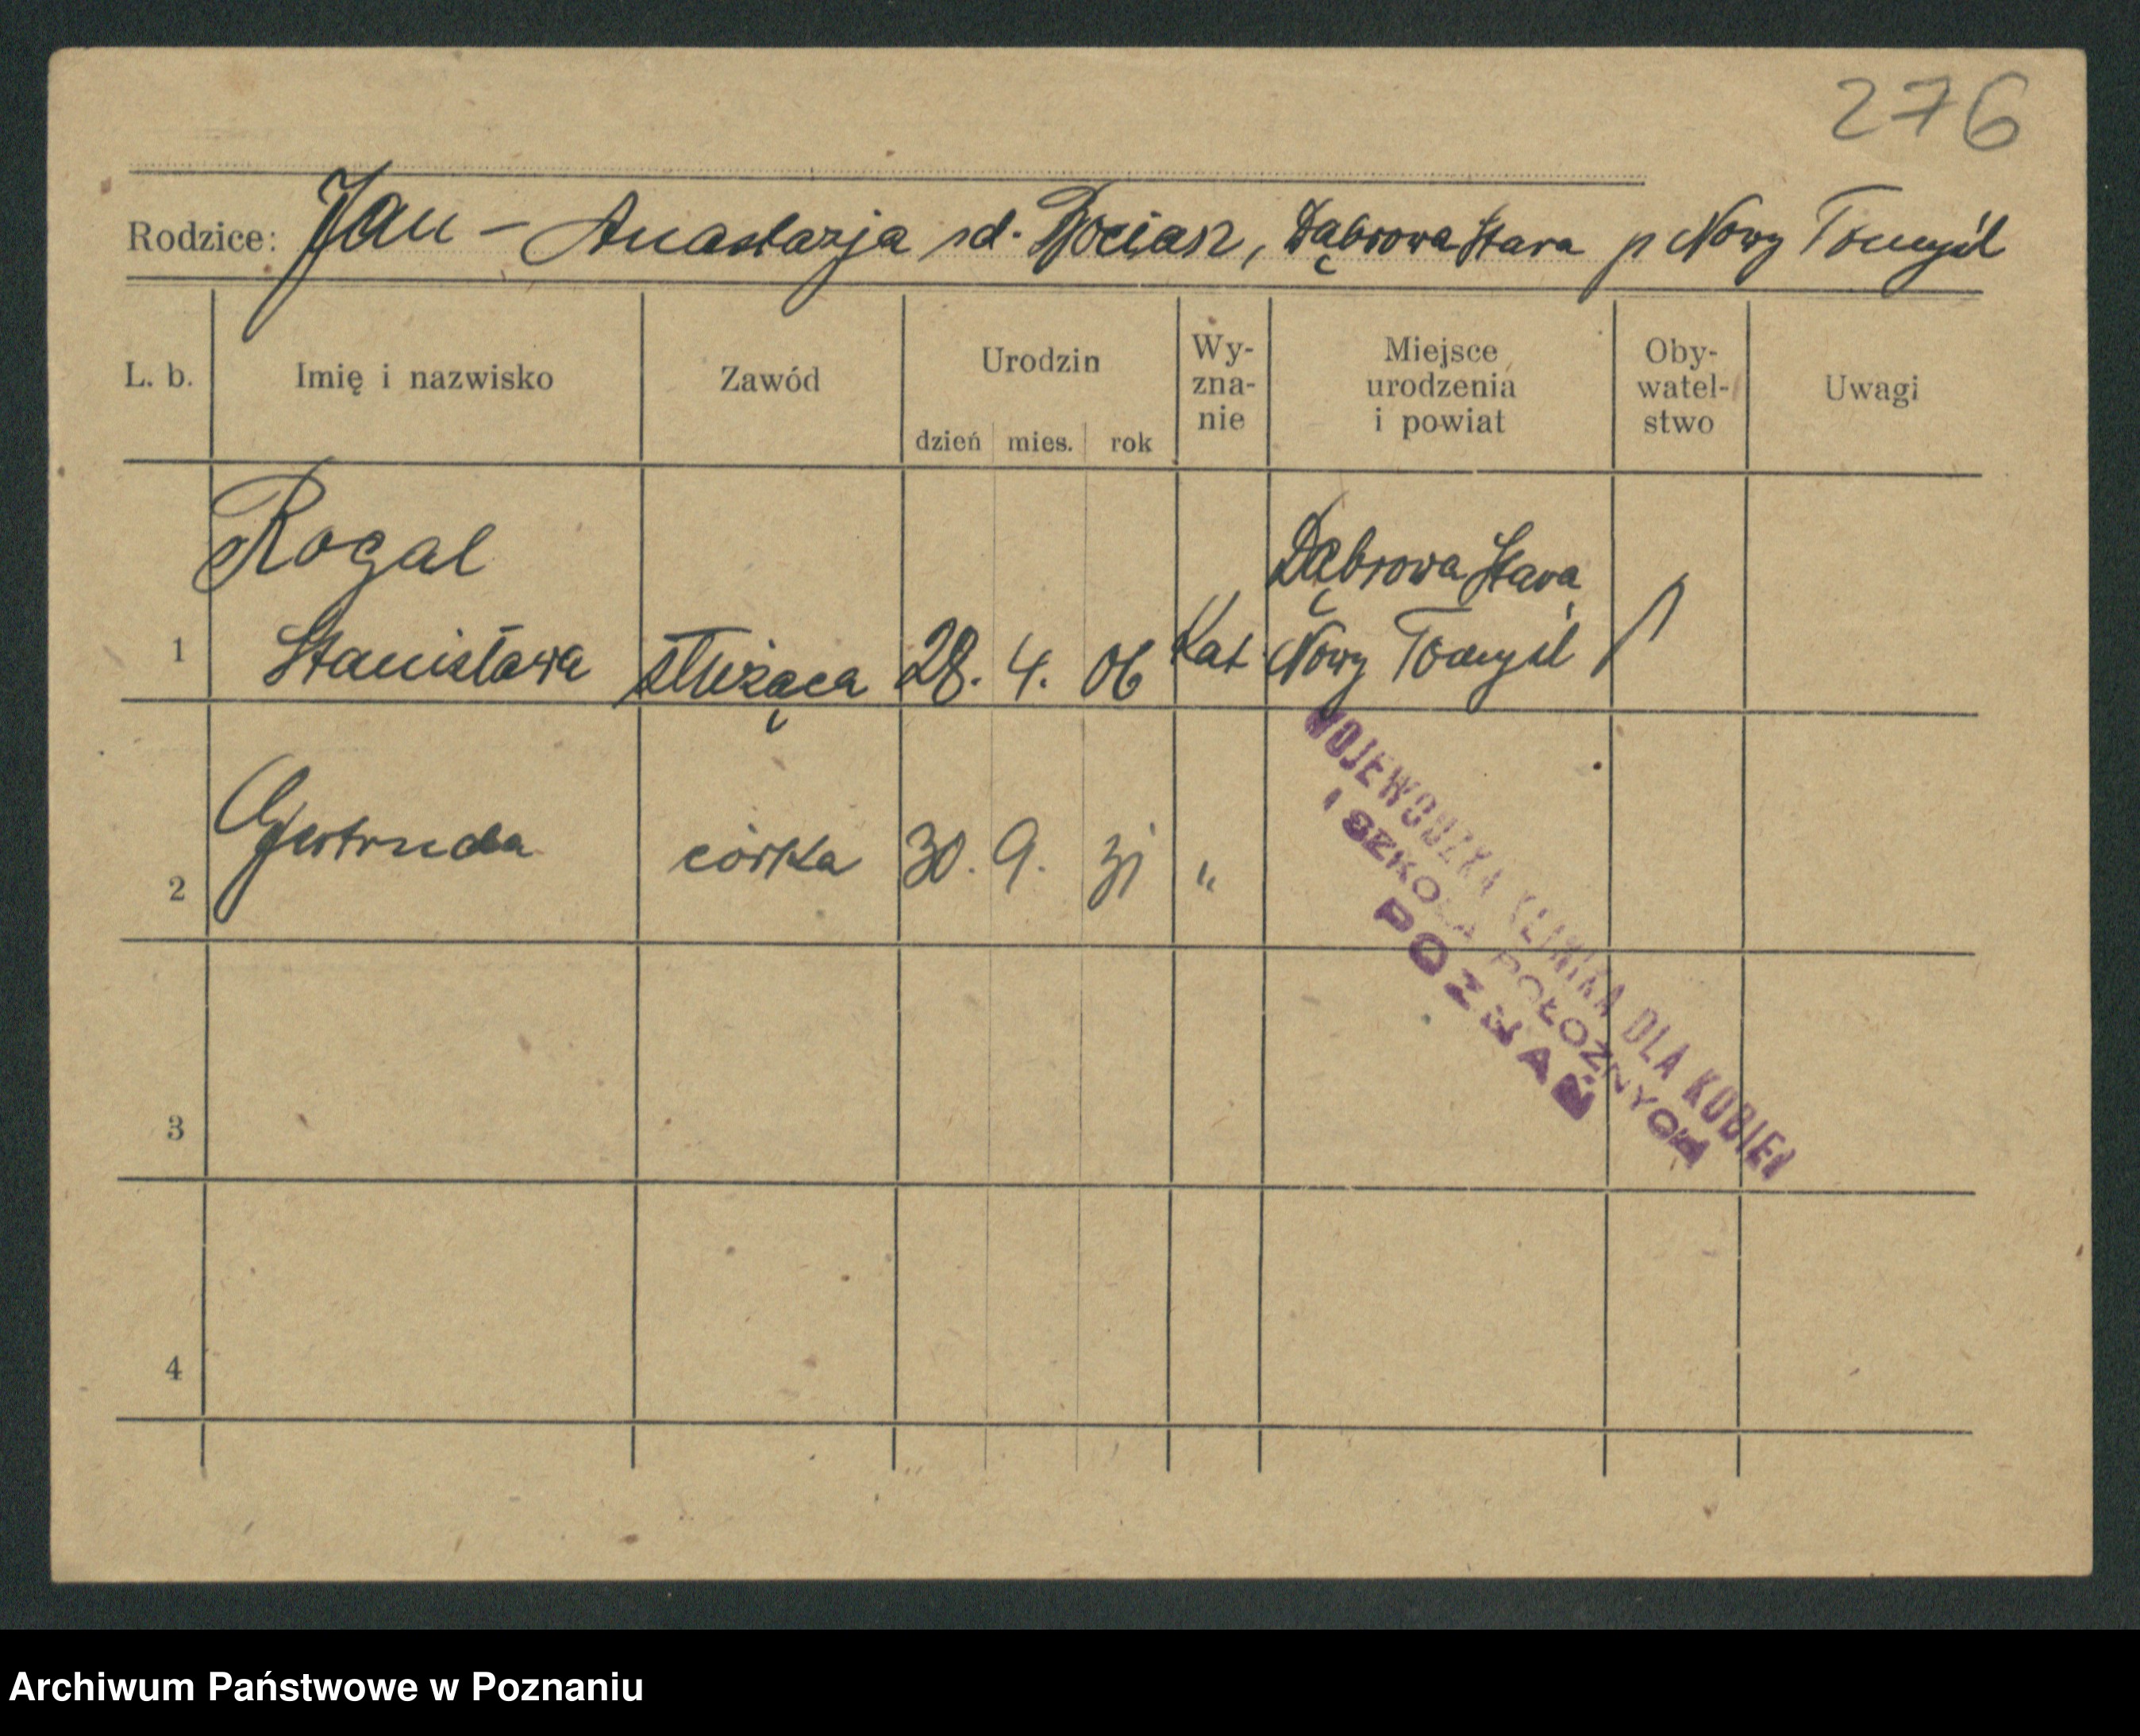 276
Rodzice: Jan – Anastazja zd. Bocian, Dąbrowa Stara p Nowy Tomyśl
L. b. Imię i nazwisko Zawód Urodzin dzień mies. rok Wy-zna-nie Miejsce urodzenia i powiat Oby-watel-stwo Uwagi
Rogal Dąbrowa Stara
1 Stanisława służąca 28. 4. 06 Kat. Nowy Tomyśl
2 Gertruda córka 30. 9. 31 "
3
4
WOJEWÓDZKA KLINIKA DLA KOBIET
I SZKOŁA POŁOŻNYCH
POZNAŃ
Archiwum Państwowe w Poznaniu